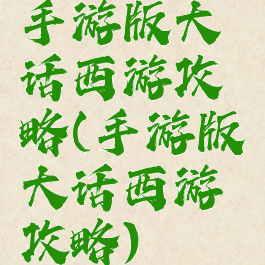 手游版大
话西游攻
略(手游版
大话西游
攻略)